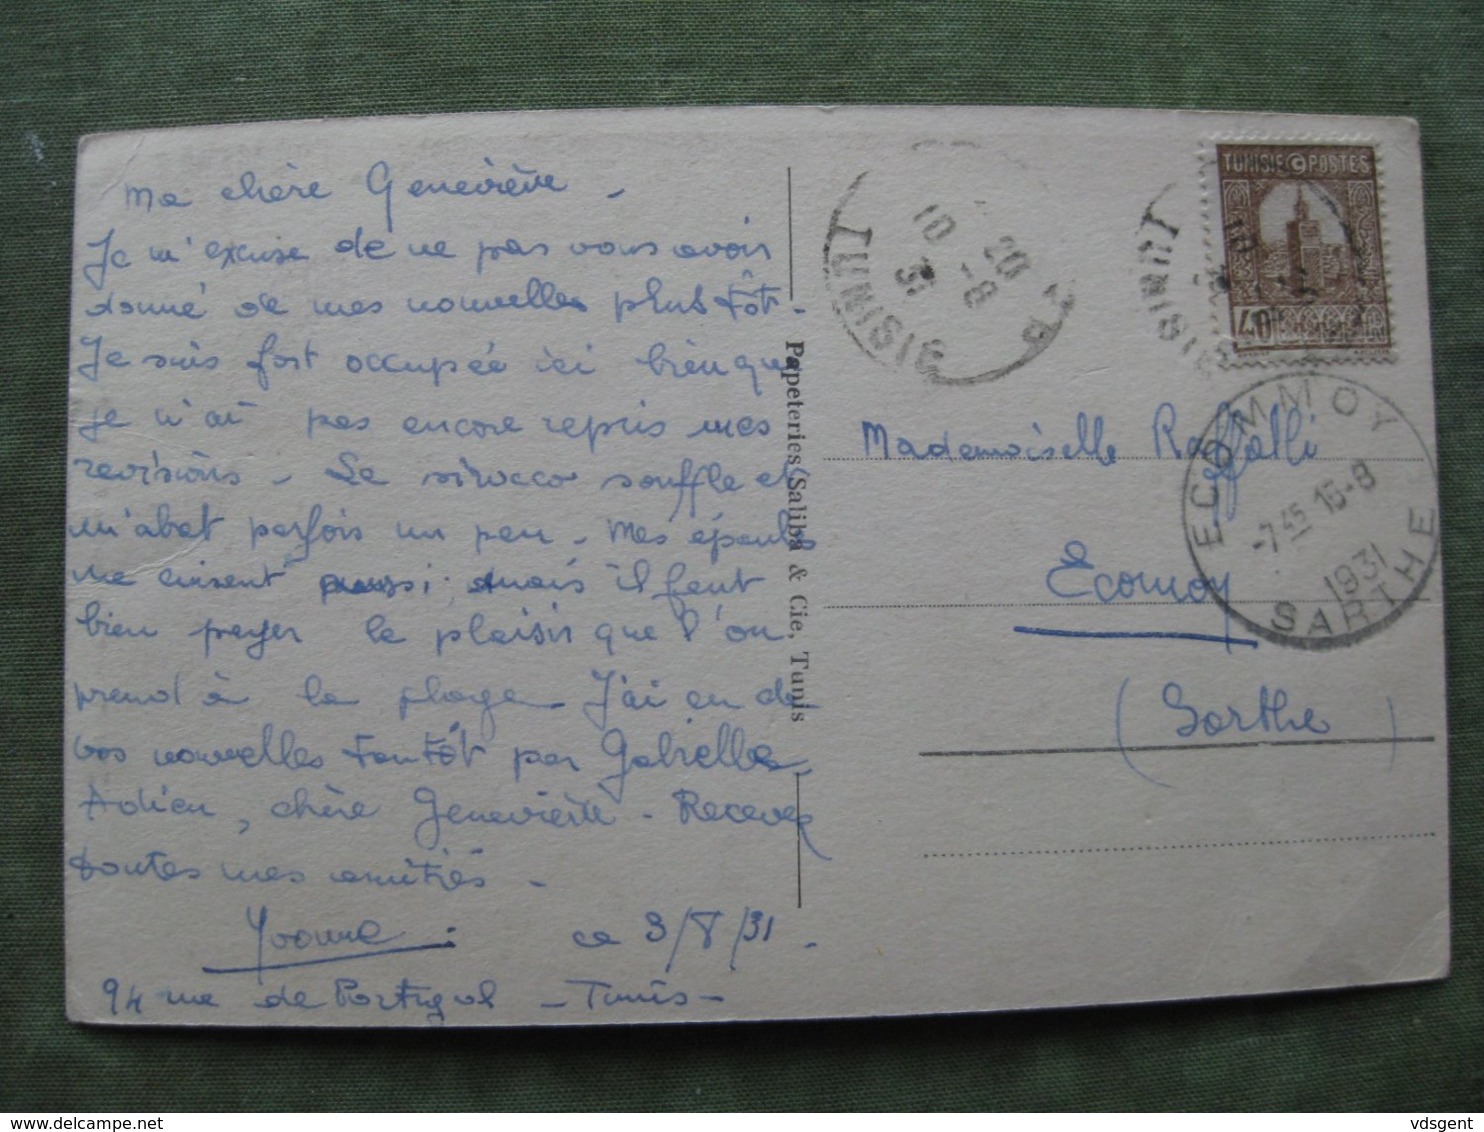 Ma chère Geneviève -
Je m'excuse de ne pas vous avoir
donné de mes nouvelles plus tôt -
Je suis fort occupée ici bien que
je n'ai pas encore repris mes
revisions - Le sirocco souffle et
m'abat parfois un peu - Mes épaules
me cuisent aussi, mais il faut
bien payer le plaisir que l'on
prend à la plage - J'ai eu de
vos nouvelles tantôt par Gabrielle,
Adieu, chère Geneviève - Recevez
toutes mes amitiés -
Yvonne ce 3/8/31 -
94 rue de Portugal - Tunis -
Papeteries Saliba & Cie, Tunis
TUNIS
20
10 - 8
31
TUNISIE POSTES
40
TUNIS
Mademoiselle Raffalli
Ecomoy
(Sarthe)
ECOMMOY
-7 45 15-8
1931
SARTHE
delcampe.net
vdsgent